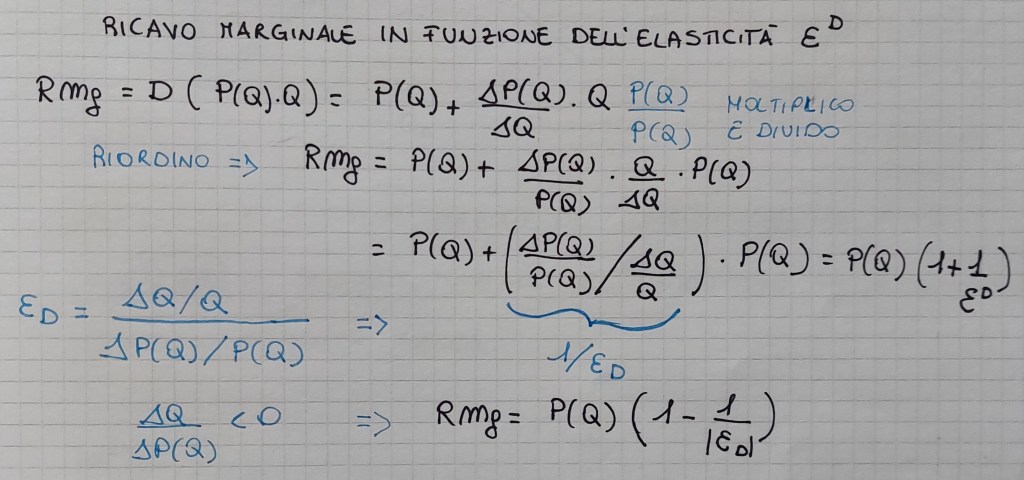 RICAVO MARGINALE IN FUNZIONE DELL'ELASTICITÀ ε^D
Rmg = D ( P(Q)·Q ) = P(Q) + ΔP(Q)/ΔQ · Q P(Q)/P(Q) MOLTIPLICO E DIVIDO
RIORDINO => Rmg = P(Q) + ΔP(Q)/P(Q) · Q/ΔQ · P(Q)
= P(Q) + ( ΔP(Q)/P(Q) / ΔQ/Q ) · P(Q) = P(Q) (1 + 1/ε^D)
ε_D = ΔQ/Q / ΔP(Q)/P(Q) => 1/ε_D
ΔQ/ΔP(Q) < 0 => Rmg = P(Q) ( 1 - 1/|ε_D| )